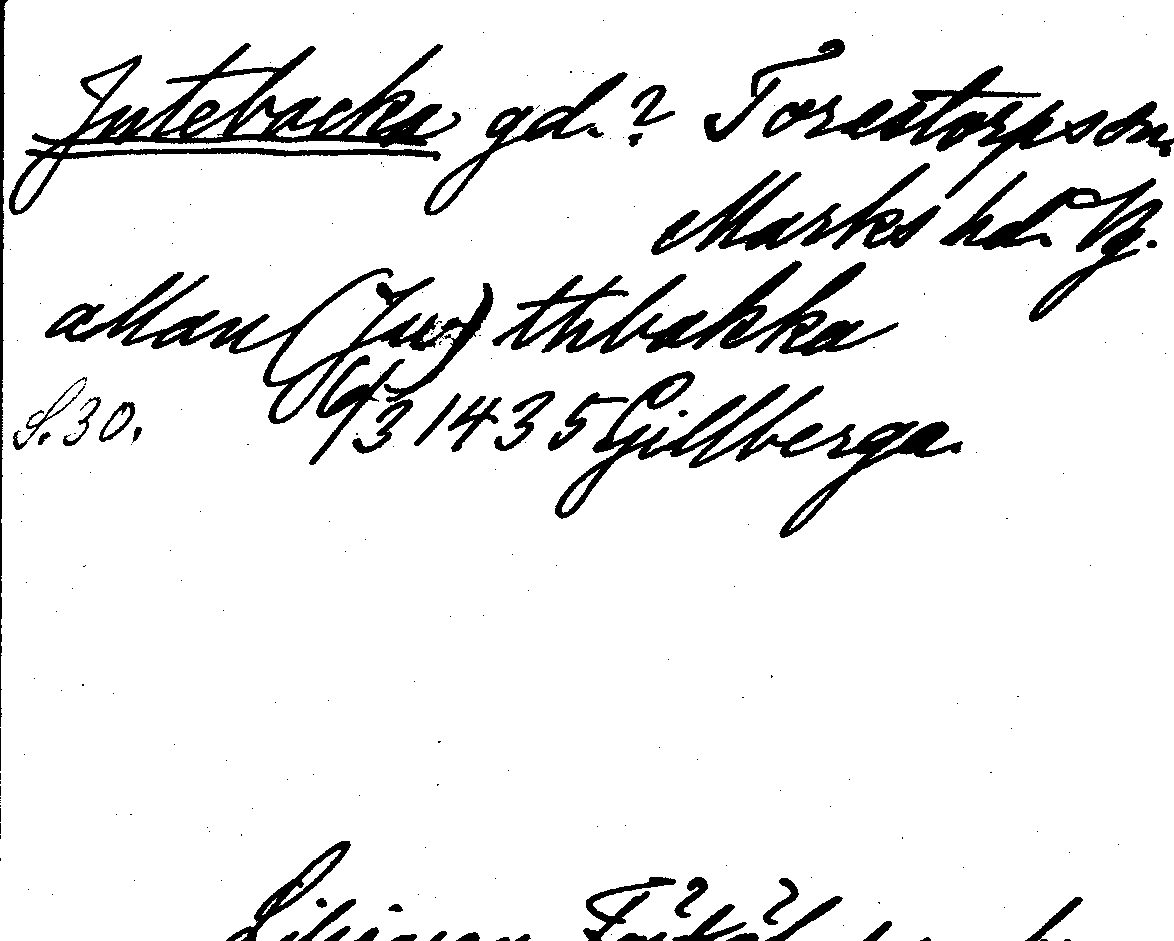 Jutebacka gd.? Torestorps sn.
Marks hd. Vg.
allan (Juw) thbakka
S.30. 6/3 1435 Gillberga.